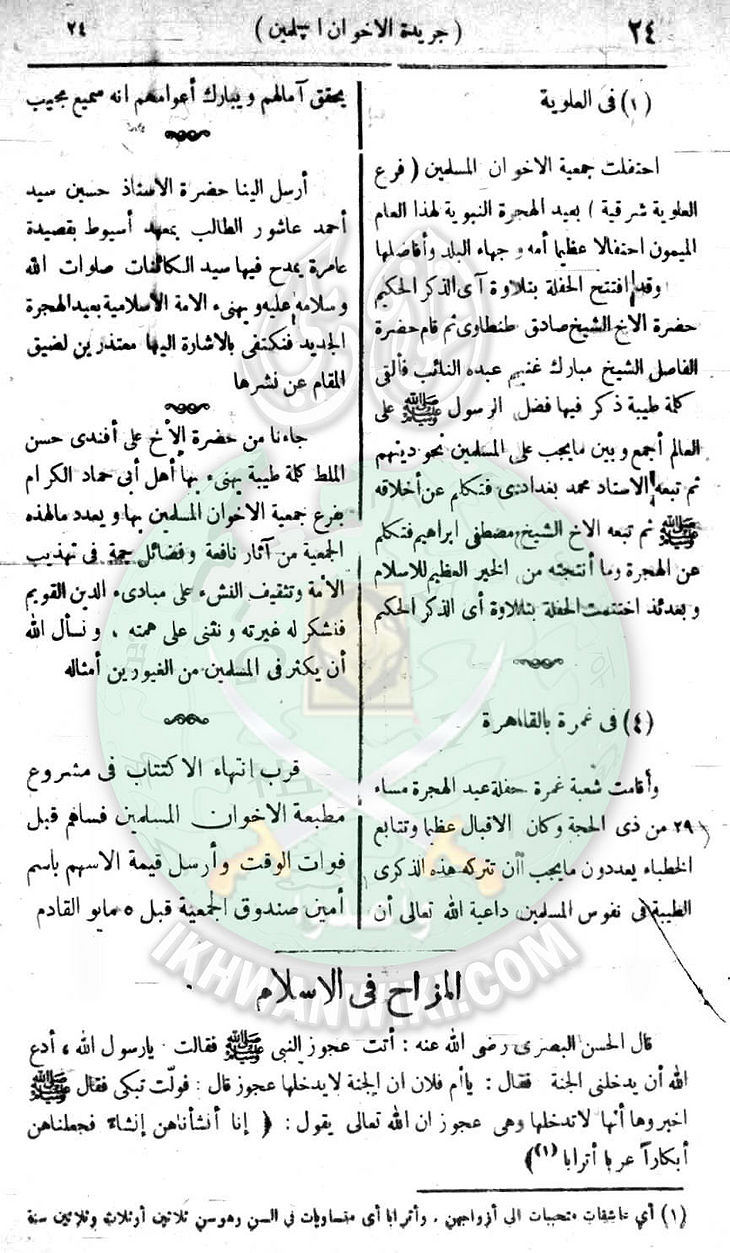 ٢٤
( جريدة الاخوان المسلمين )
٢٤
(١) فى العلوية
احتفلت جمعية الاخوان المسلمين ( فرع
العلوية شرقية ) بعيد الهجرة النبوية لهذا العام
الميمون احتفالا عظيما أمه وجهاء البلد وأفاضلها
وقد افتتح الحفلة بتلاوة آى الذكر الحكيم
حضرة الاخ الشيخ صادق طنطاوى ثم قام حضرة
الفاضل الشيخ مبارك غنيم عبده النائب فألقى
كلمة طيبة ذكر فيها فضل الرسول ﷺ على
العالم أجمع وبين مايجب على المسلمين نحو دينهم
ثم تبعه الاستاذ محمد بغدادى فتكلم عن أخلاقه
ﷺ ثم تبعه الاخ الشيخ مصطفى ابراهيم فتكلم
عن الهجرة وما أنتجته من الخير العظيم للاسلام
وبعدئذ اختتمت الحفلة بتلاوة أى الذكر الحكيم
(٤) فى غمرة بالقاهرة
وأقامت شعبة غمرة حفلة عيد الهجرة مساء
٢٩ من ذى الحجة وكان الاقبال عظيما وتتابع
الخطباء يعددون مايجب أن تتركه هذه الذكرى
الطيبة فى نفوس المسلمين داعية الله تعالى أن
يحقق آمالهم ويبارك أعوامهم انه سميع مجيب
أرسل الينا حضرة الاستاذ حسين سيد
أحمد عاشور الطالب بمعهد أسيوط بقصيدة
عامرة يمدح فيها سيد الكائنات صلوات الله
وسلامه عليه ويهنىء الامة الاسلامية بعيد الهجرة
الجديد فنكتفى بالاشارة اليها معتذرين لضيق
المقام عن نشرها
جاءنا من حضرة الأخ على أفندى حسن
الملط كلمة طيبة يهنىء بها أهل أبى حماد الكرام
بفرع جمعية الاخوان المسلمين بها ويعدد مالهذه
الجمعية من آثار نافعة وفضائل جمة فى تهذيب
الأمة وتثقيف النشء على مبادىء الدين القويم
فنشكر له غيرته ونثنى على همته ، ونسأل الله
أن يكثر فى المسلمين من الغيورين أمثاله
قرب انتهاء الاكتتاب فى مشروع
مطبعة الاخوان المسلمين فساهم قبل
فوات الوقت وأرسل قيمة الاسهم باسم
أمين صندوق الجمعية قبل ٥ مايو القادم
IKHWANWIKI.COM
المزاح فى الاسلام
قال الحسن البصرى رضى الله عنه : أتت عجوز النبى ﷺ فقالت يارسول الله ، أدع
الله أن يدخلنى الجنة فقال : ياأم فلان ان الجنة لايدخلها عجوز قال : فولّت تبكى فقال ﷺ
اخبروها أنها لاتدخلها وهى عجوز ان الله تعالى يقول : ( إنا أنشأناهن إنشاء فجعلناهن
أبكارآ عربا أترابا (١))
(١) أي عاشقات متحببات الى أزواجهن . وأترابا أى متساويات فى السن وهوسن ثلاثين أوثلاث وثلاثين سنة